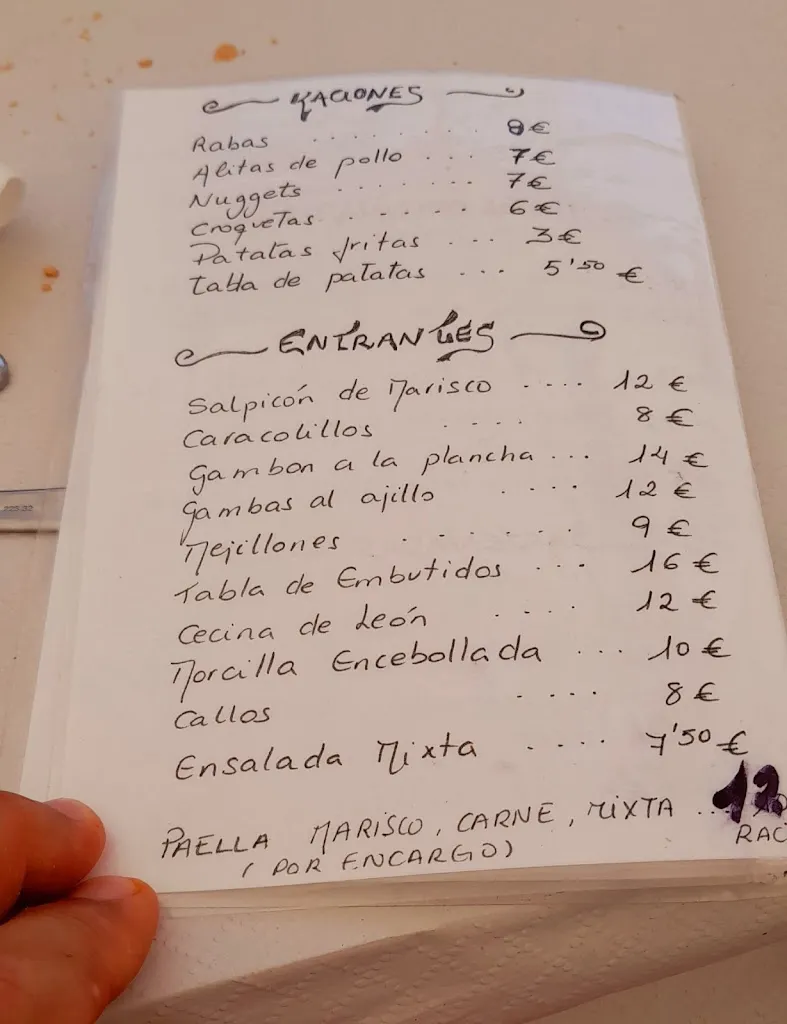 RACIONES
Rabas ........ 8€
Alitas de pollo ... 7€
Nuggets ....... 7€
Croquetas ...... 6€
Patatas fritas ... 3€
Tabla de patatas ... 5'50 €
ENTRANTES
Salpicón de Marisco .... 12 €
Caracolillos .... 8 €
Gambon a la plancha ... 14 €
Gambas al ajillo .... 12 €
Mejillones ...... 9 €
Tabla de Embutidos ... 16 €
Cecina de León .... 12 €
Morcilla Encebollada ... 10 €
Callos .... 8 €
Ensalada Mixta .... 7'50 €
PAELLA MARISCO, CARNE, MIXTA ... 12
(POR ENCARGO) RAC